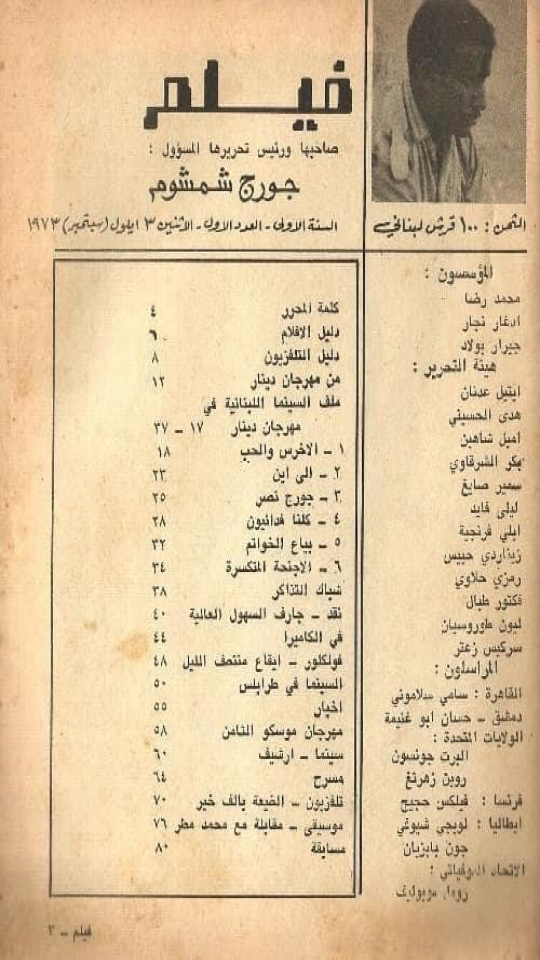 فيلم
صاحبها ورئيس تحريرها المسؤول :
جورج شمشوم
السنة الاولى - العدد الاول - الاثنين ٣ ايلول (سبتمبر) ١٩٧٣
الثمن : ١٠٠ قرش لبناني
المؤسسون :
محمد رضا
ادغار نجار
جيرار بولاد
هيئة التحرير :
ايتيل عدنان
هدى الحسيني
اميل شاهين
بكر الشرقاوي
سمير صايغ
ليلى فايد
ايلي فرنجية
زيناردي حبيس
رمزي حلاوي
فكتور طبال
ليون طوروسيان
سركيس زعتر
المراسلون :
القاهرة : سامي سلاموني
دمشق - حسان ابو غنيمة
الولايات المتحدة :
البرت جونسون
روبن زهرنغ
فرنسا : فيلكس حجيج
ايطاليا : لويجي شيوغي
جون بابزيان
الاتحاد السوفياتي :
كلمة المحرر ٤
دليل الافلام ٦
دليل التلفزيون ٨
من مهرجان دينار ١٢
ملف السينما اللبنانية في
مهرجان دينار ١٧ - ٣٧
١ - الاخرس والحب ١٨
٢ - الى اين ٢٣
٣ - جورج نصر ٢٥
٤ - كلنا فدائيون ٢٨
٥ - بياع الخواتم ٣٢
٦ - الاجنحة المتكسرة ٣٤
شباك التذاكر ٣٨
نقد - جارف السهول العالية ٤٠
في الكاميرا ٤٤
فولكلور - ايقاع منتصف الليل ٤٨
السينما في طرابلس ٥٠
اخبار ٥٥
مهرجان موسكو الثامن ٥٨
سينما - ارشيف ٦٠
مسرح ٦٤
تلفزيون - الضيعة بالف خير ٧٠
موسيقى - مقابلة مع محمد مطر ٧٦
مسابقة ٨٠
فيلم - ٣